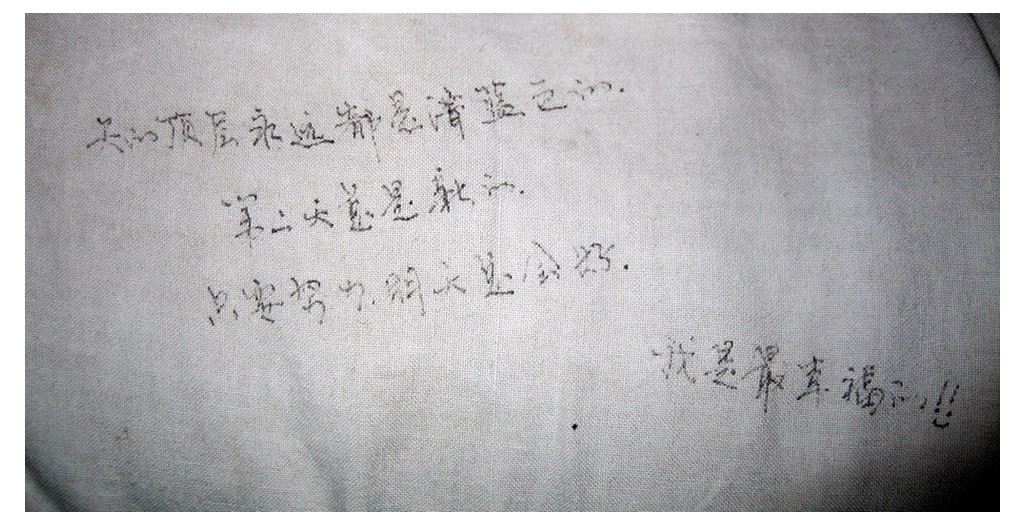 天的顶层永远都是清蓝色的.
第二天总是新的.
只要努力.明天总会好.
我是最幸福的!!